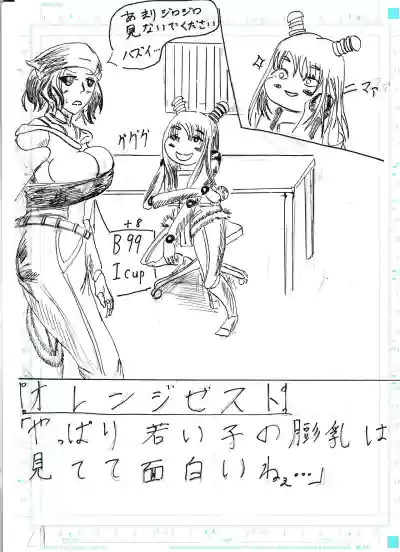 あまりジロジロ
見ないでください
ハズイ…
マァァ
グググ
+8
B99
Icup
オレンジゼスト
「やっぱり若い子の膨乳は
見てて面白いねぇ…」